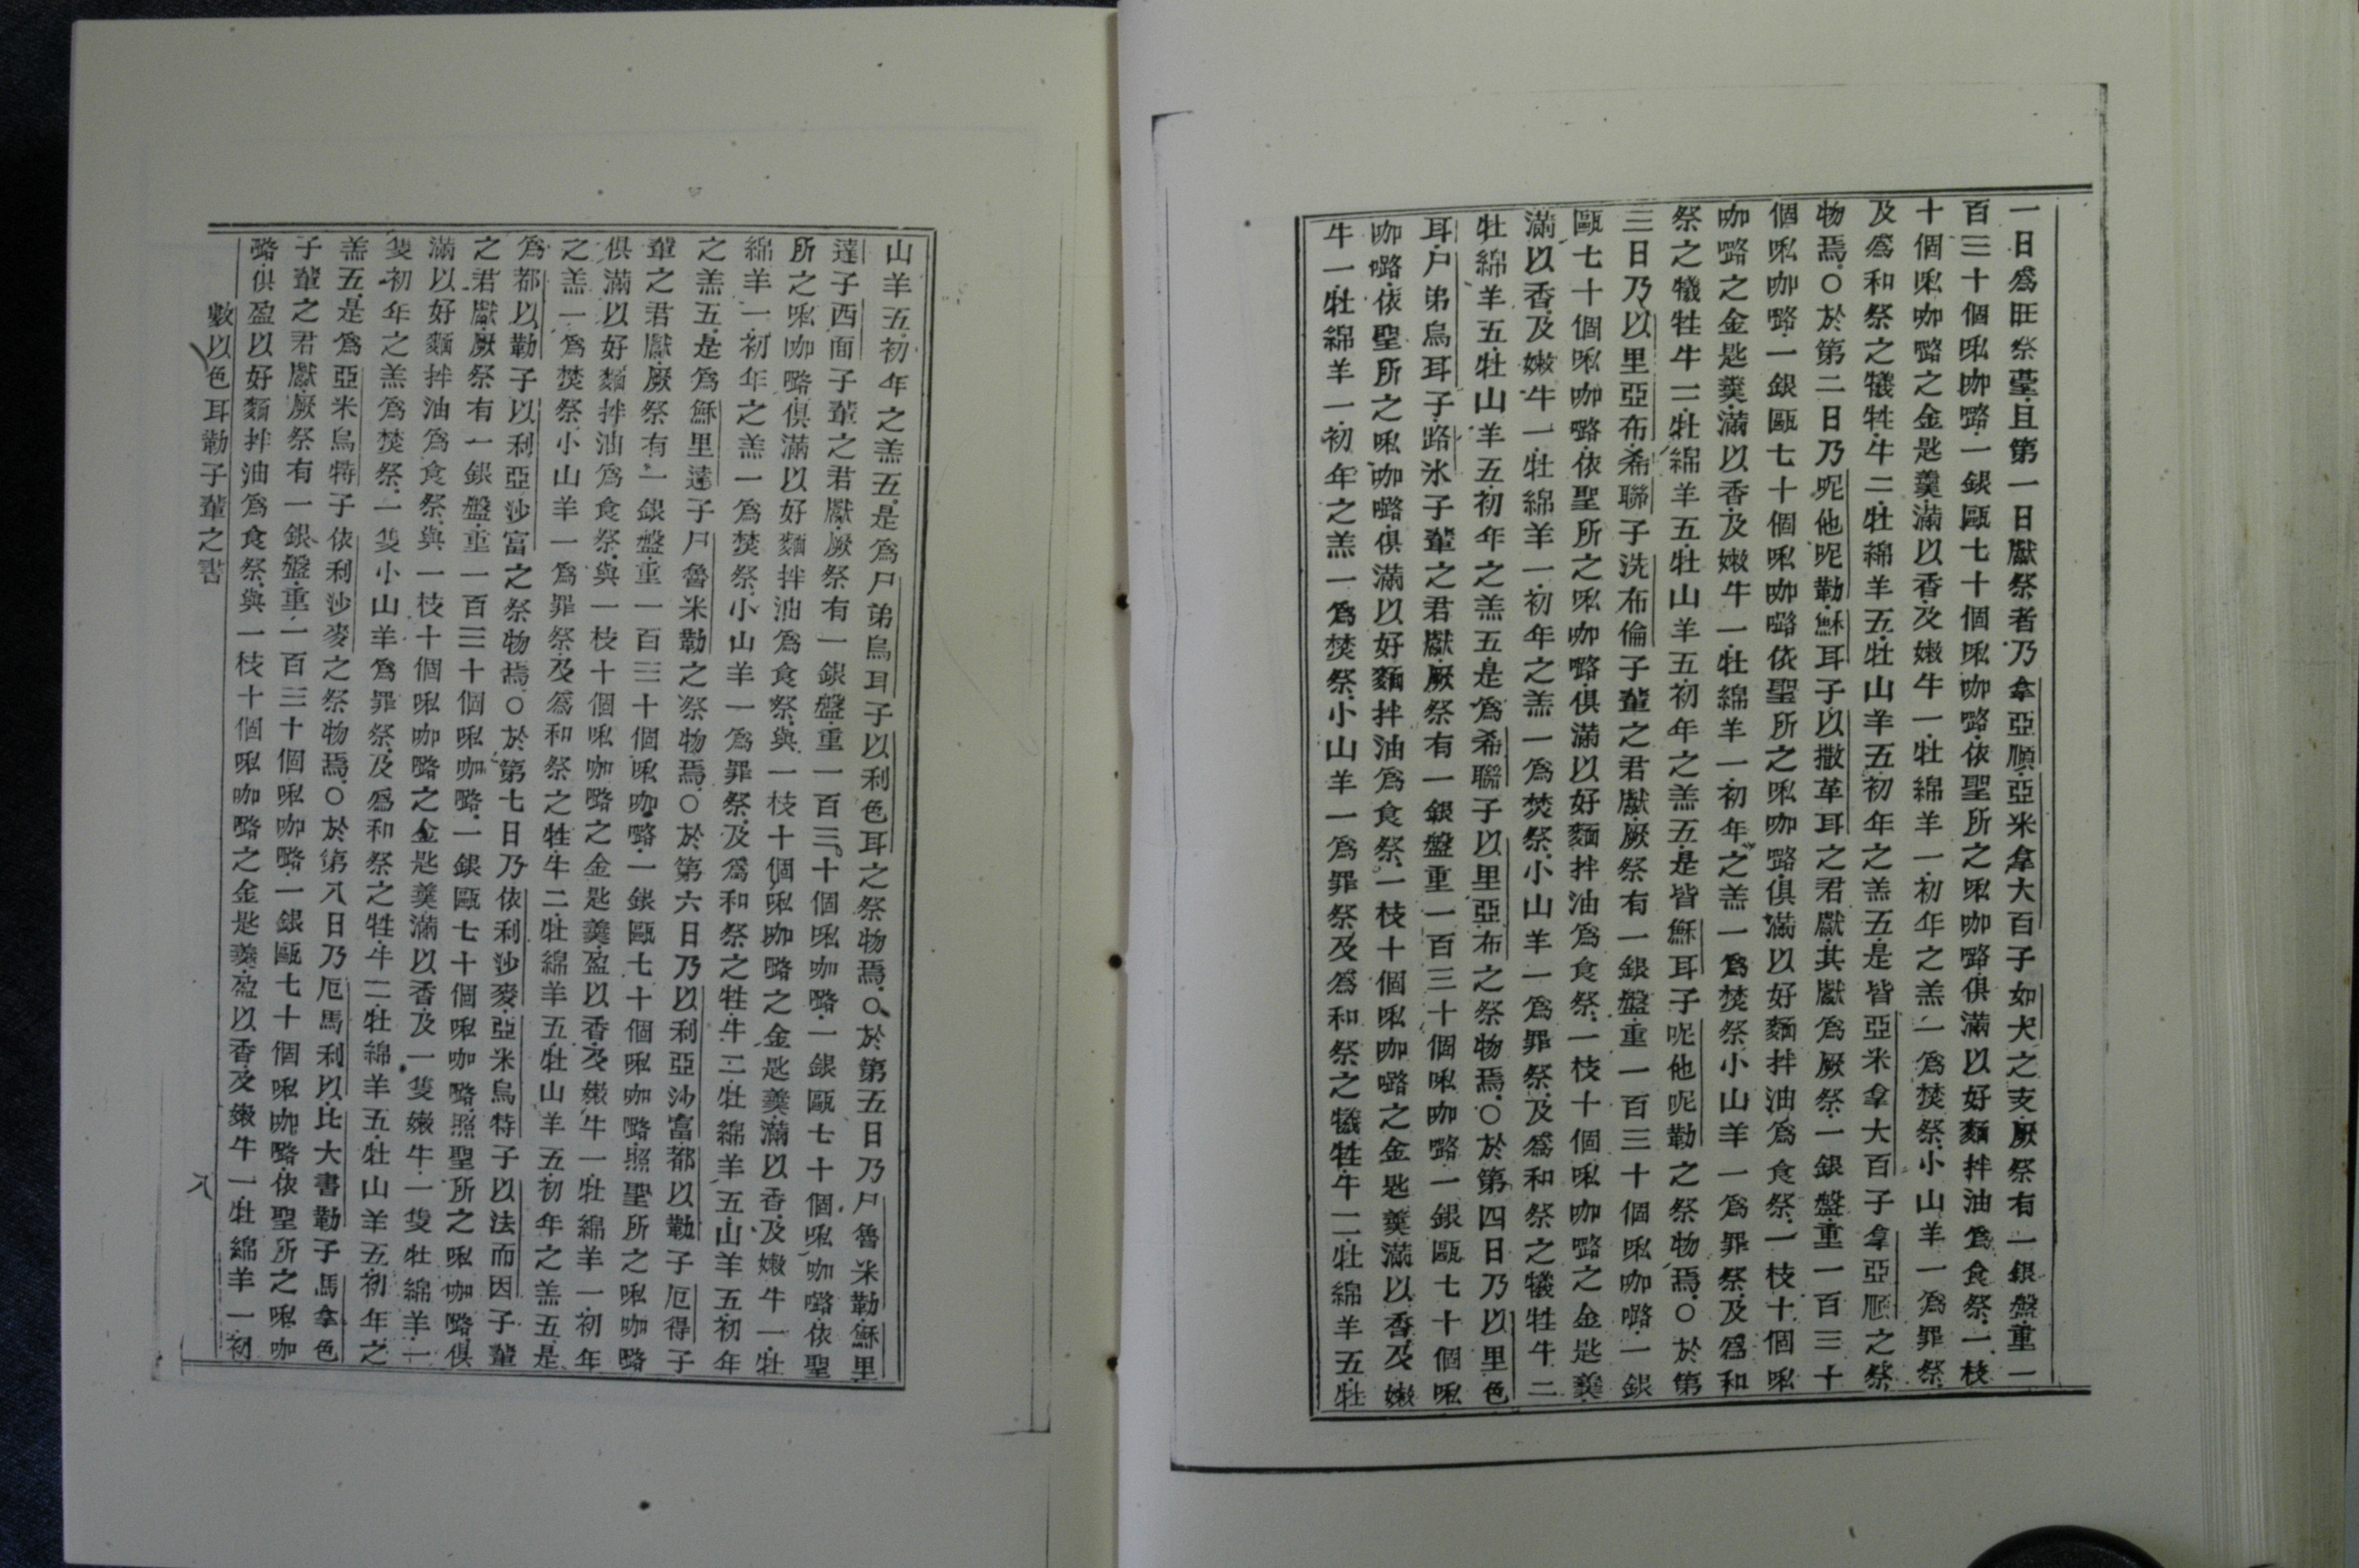 一日爲旺祭臺·且第一日獻祭者·乃拿亞順·亞米拿大百子如犬之支·厥祭有一銀盤·重一
百三十個𠵽咖𠸄·一銀甌七十個𠵽咖𠸄·依聖所之𠵽咖𠸄·俱滿以好麵拌油爲食祭·一枝
十個𠵽咖𠸄之金匙羹·滿以香·及嫩牛一·牡綿羊一·初年之羔一爲焚祭·小山羊一爲罪祭·
及爲和祭之犧牲·牛二·牡綿羊五·牡山羊五·初年之羔五·是皆亞米拿大百子拿亞順之祭
物焉·○於第二日乃呢他呢勒·穌耳子以撒革耳之君獻·其獻爲厥祭·一銀盤·重一百三十
個𠵽咖𠸄·一銀甌七十個𠵽咖𠸄依聖所之𠵽咖𠸄·俱滿以好麵拌油爲食祭·一枝十個𠵽
咖𠸄之金匙羹·滿以香·及嫩牛一·牡綿羊一·初年之羔一爲焚祭·小山羊一爲罪祭·及爲和
祭之犧牲牛二·牡綿羊五·牡山羊五·初年之羔五·是皆穌耳子呢他呢勒之祭物焉·○於第
三日乃以里亞布·希聯子洗布倫子輩之君獻·厥祭有一銀盤·重一百三十個𠵽咖𠸄·一銀
甌七十個𠵽咖𠸄·依聖所之𠵽咖𠸄·俱滿以好麵拌油爲食祭·一枝十個𠵽咖𠸄之金匙羹·
滿以香·及嫩牛一·牡綿羊一·初年之羔一爲焚祭·小山羊一爲罪祭·及爲和祭之犧牲牛二·
牡綿羊五·牡山羊五·初年之羔五·是爲希聯子以里亞布之祭物焉·○於第四日乃以里色
耳·尸弟烏耳子·路氷子輩之君獻·厥祭有一銀盤重一百三十個𠵽咖𠸄·一銀甌七十個𠵽
咖𠸄·依聖所之𠵽咖𠸄·俱滿以好麵拌油爲食祭·一枝十個𠵽咖𠸄之金匙羹滿以香·及嫩
牛一·牡綿羊一·初年之羔一爲焚祭·小山羊一爲罪祭·及爲和祭之犧牲·牛二·牡綿羊五·牡
山羊五·初年之羔五·是爲尸弟烏耳子以利色耳之祭物焉·○於第五日乃尸魯米勒·穌里
達子西面子輩之君獻·厥祭有一銀盤·重一百三十個𠵽咖𠸄·一銀甌七十個𠵽咖𠸄·依聖
所之𠵽咖𠸄·俱滿以好麵拌油爲食祭·與一枝十個𠵽咖𠸄之金匙羹·滿以香·及嫩牛一·牡
綿羊一·初年之羔一爲焚祭·小山羊一爲罪祭·及爲和祭之牲·牛二·牡綿羊五·山羊五初年
之羔五·是爲穌里達子尸魯米勒之祭物焉·○於第六日乃以利亞沙富·都以勒子厄得子
輩之君獻·厥祭有一銀盤·重一百三十個𠵽咖𠸄·一銀甌七十個𠵽咖𠸄·照聖所之𠵽咖𠸄
俱滿以好麵拌油爲食祭·與一枝十個𠵽咖𠸄之金匙羹·盈以香·及嫩牛一牡綿羊一·初年
之羔一爲焚祭·小山羊一爲罪祭·及爲和祭之牲·牛二·牡綿羊五·牡山羊五·初年之羔五·是
爲都以勒子以利亞沙富之祭物焉·○於第七日乃依利沙麥·亞米烏特子以法而因子輩
之君獻·厥祭有一銀盤·重一百三十個𠵽咖𠸄·一銀甌七十個𠵽咖𠸄·照聖所之𠵽咖𠸄·俱
滿以好麵拌油爲食祭·與一枝十個𠵽咖𠸄之金匙羹滿以香·及一隻嫩牛·一隻牡綿羊·一
隻初年之羔爲焚祭·一隻小山羊爲罪祭·及爲和祭之牲·牛二·牡綿羊五·牡山羊五·初年之
羔五·是爲亞米烏特子依利沙麥之祭物焉·○於第八日乃厄馬利以·比大書勒子馬拿色
子輩之君獻·厥祭有一銀盤·重一百三十個𠵽咖𠸄·一銀甌七十個𠵽咖𠸄·依聖所之𠵽咖
𠸄·俱盈以好麵拌油爲食祭·與一枝十個𠵽咖𠸄之金匙羹·盈以香·及嫩牛一·牡綿羊一·初
數以色耳勒子輩之書
八